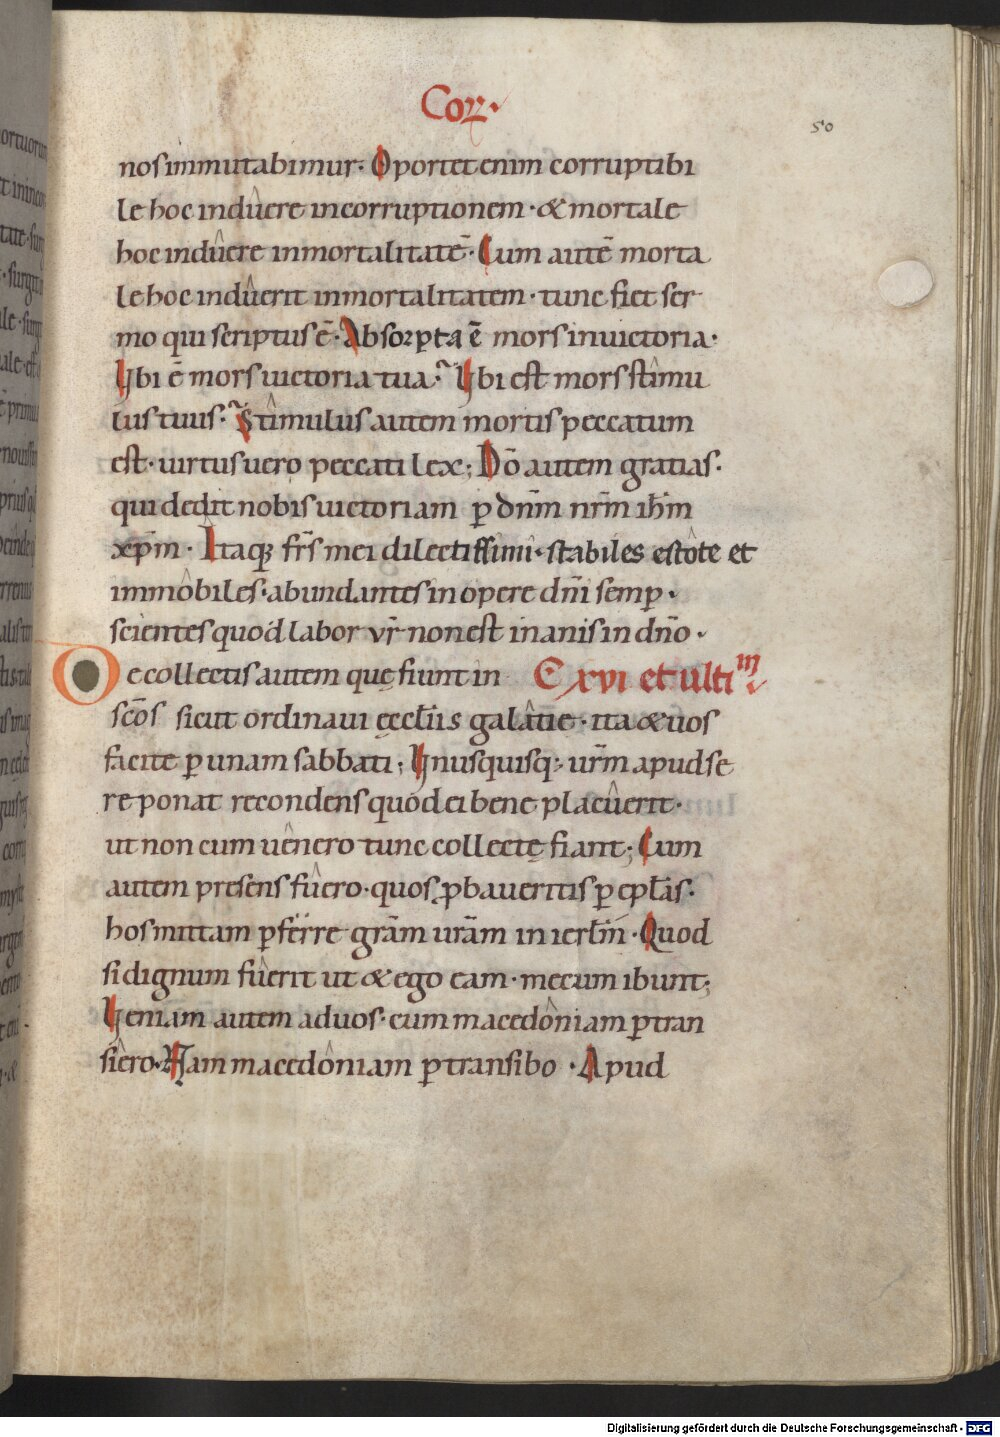 Corr.
50
nos immutabimur. Oportet enim corruptibi
le hoc indûere incorruptionem. & mortale
hoc indûere inmortalitatē. Cum autē morta
le hoc indûerit inmortalitatem. tunc fiet ser
mo qui scriptus ē. Absorpta ē mors in uictoria.
Ubi ē mors uictoria tua? Ubi est mors stîmu
lus tuus? Stîmulus autem mortis peccatum
est. uirtus uero peccati lex; Dō autem gratias.
qui dedit nobis uictoriam p̱ dn̄m nr̄m ih̄m
xp̄m. Itaq; fr̄s mei dilectissimi. stabiles estôte et
immôbiles. abundantes in opere dn̄i semp̱.
scientes quod labor vr̄ non est inanis in dn̄o.
De collectis autem quę fiunt in
E xvi et ultiᵐ
sc̄os sicut ordinaui ęccl̄iis galâtie. ita & uos
facite p̱ unam sabbati; Unusquisq; ur̄m apud se
reponat recondens quod ei bene placûerit.
ut non cum uênero tunc collectę fiant; Cum
autem presens fûero. quos ꝓbaueritis p̱ epl̄as.
hos mittam p̱ferre gr̄am ur̄am in ierl̄m. Quod
si dignum fûerit ut & ego eam. mecum ibunt;
Ueniam autem ad uos. cum macedôniam p̱tran
siêro. Nam macedôniam p̱transibo. Apud
Digitalisierung gefördert durch die Deutsche Forschungsgemeinschaft - DFG